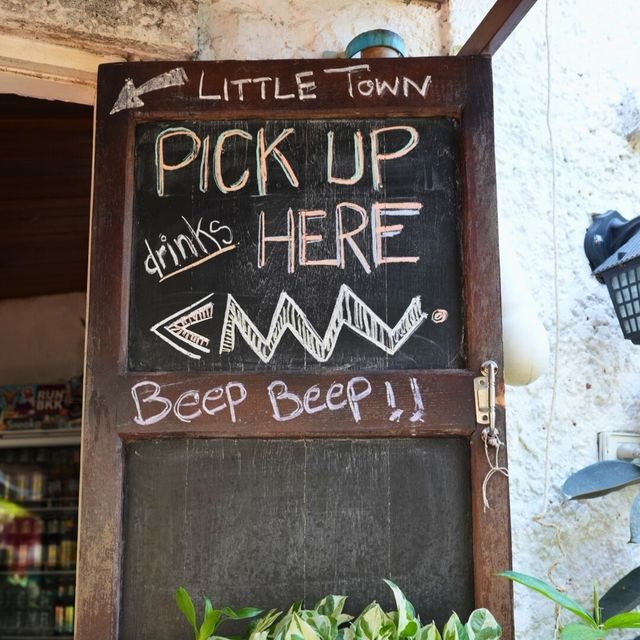 LITTLE TOWN
PICK UP
drinks HERE
BEEP BEEP!!